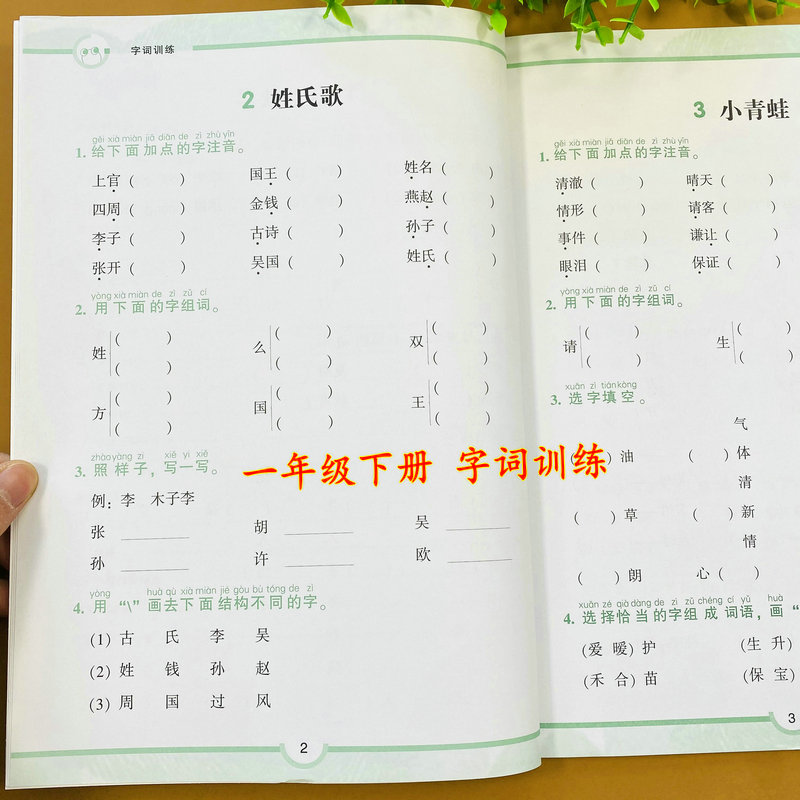 字词训练
2 姓氏歌
gěi xià miàn jiā diǎn de zì zhù yīn
1. 给下面加点的字注音。
上官( ) 国王( ) 姓名( )
四周( ) 金钱( ) 燕赵( )
李子( ) 古诗( ) 孙子( )
张开( ) 吴国( ) 姓氏( )
yòng xià miàn de zì zǔ cí
2. 用下面的字组词。
姓 ( ) ( ) 么 ( ) ( ) 双 ( ) ( )
方 ( ) ( ) 国 ( ) ( ) 王 ( ) ( )
zhào yàng zi xiě yi xiě
3. 照样子，写一写。
例：李 木子李
张 胡 吴
孙 许 欧
yòng huà qù xià miàn jié gòu bù tóng de zì
4. 用“\”画去下面结构不同的字。
(1) 古 氏 李 吴
(2) 姓 钱 孙 赵
(3) 周 国 过 风
2
3 小青蛙
gěi xià miàn jiā diǎn de zì zhù yīn
1. 给下面加点的字注音。
清澈( ) 晴天( )
情形( ) 请客( )
事件( ) 谦让( )
眼泪( ) 保证( )
yòng xià miàn de zì zǔ cí
2. 用下面的字组词。
请 ( ) ( ) 生 ( ) ( )
xuǎn zì tián kòng
3. 选字填空。
气
( )油 ( )体
清
( )草 ( )新
情
( )朗 心( )
xuǎn zé qià dàng de zì zǔ chéng cí yǔ huà
4. 选择恰当的字组成词语，画“
(爱 暖)护 (生 升)
(禾 合)苗 (保 宝)
3
一年级下册 字词训练